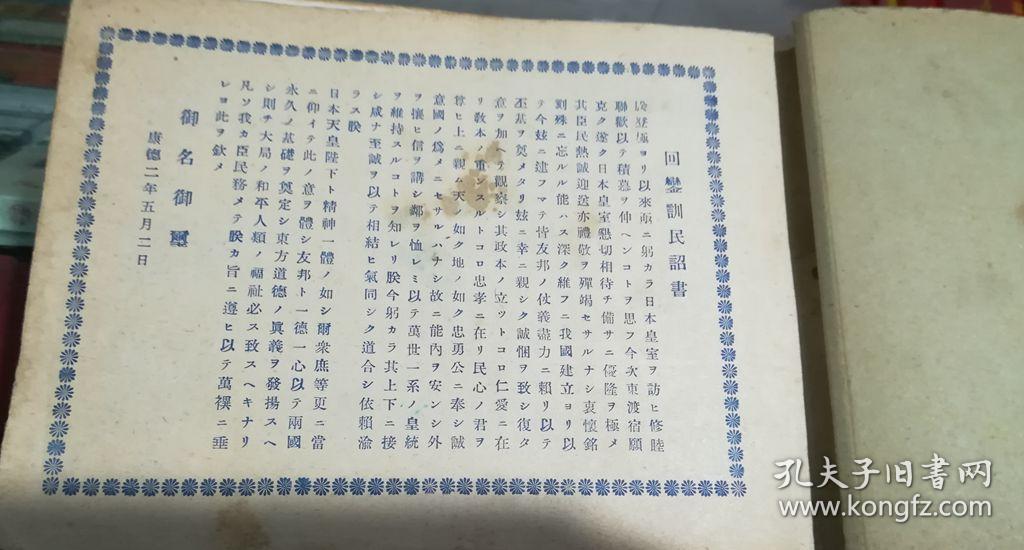 回鑾訓民詔書
朕登極ヨリ以來亟ニ躬カラ日本皇室ヲ訪ヒ修睦
聯歡以テ積慕ヲ伸ヘンコトヲ思フ今次東渡宿願
克ク遂ク日本皇室懇切相待チ備サニ優隆ヲ極メ
其臣民熱誠迎送亦禮敬ヲ殫竭セサルナシ衷懷銘
刻殊ニ忘ルル能ハス深ク維フニ我國建立ヨリ以
テ今玆ニ逮フマテ皆友邦ノ仗義盡力ニ賴リ以テ
丕基ヲ奠メタリ玆ニ幸ニ親シク誠悃ヲ致シ復タ
意ヲ加ヘテ觀察シ其政本ノ立ツトコロ仁愛ニ在
リ敎本ノ重ンスルトコロ忠孝ニ在リ民心ノ君ヲ
尊ヒ上ニ親ム天ノ如ク地ノ如ク忠勇公ニ奉シ誠
意國ノ爲メニセサルハナシ故ニ能內ヲ安ンシ外
ヲ攘ヒ信ヲ講シ鄰ヲ恤レミ以テ萬世一系ノ皇統
ヲ維持スルコトヲ知レリ朕今躬カラ其上下ニ接
シ咸ナ至誠ヲ以テ相結ヒ氣同シク道合シ依賴渝
ラス朕
日本天皇陛下ト精神一體ノ如シ爾衆庶等更ニ當
ニ仰イテ此ノ意ヲ體シ友邦ト一德一心以テ兩國
永久ノ基礎ヲ奠定シ東方道德ノ眞義ヲ發揚スヘ
シ則チ大局ノ和平人類ノ福祉必ス致スヘキナリ
凡ソ我カ臣民務メテ朕カ旨ニ遵ヒ以テ萬禩ニ垂
レヨ此ヲ欽メ
御名御璽
康德二年五月二日
孔夫子旧书网
www.kongfz.com